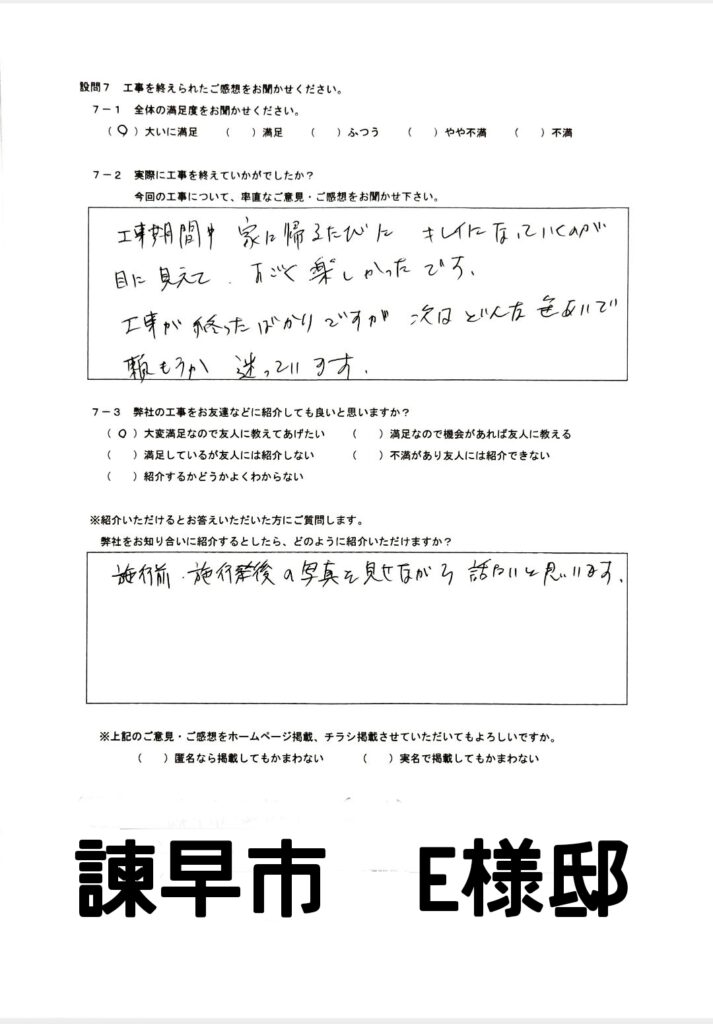 設問7 工事を終えられたご感想をお聞かせください。
7-1 全体の満足度をお聞かせください。
(○)大いに満足 ( )満足 ( )ふつう ( )やや不満 ( )不満
7-2 実際に工事を終えていかがでしたか?
今回の工事について、率直なご意見・ご感想をお聞かせ下さい。
工事期間中 家に帰るたびに キレイになっていくのが
目に見えて、すごく楽しかったです。
工事が終ったばかりですが 次はどんな色あいで
頼もうか 迷っています。
7-3 弊社の工事をお友達などに紹介しても良いと思いますか?
(○)大変満足なので友人に教えてあげたい ( )満足なので機会があれば友人に教える
( )満足しているが友人には紹介しない ( )不満があり友人には紹介できない
( )紹介するかどうかよくわからない
※紹介いただけるとお答えいただいた方にご質問します。
弊社をお知り合いに紹介するとしたら、どのように紹介いただけますか?
施行前・施行後の写真を見せながら 話たいと思います。
※上記のご意見・ご感想をホームページ掲載、チラシ掲載させていただいてもよろしいですか。
( )匿名なら掲載してもかまわない ( )実名で掲載してもかまわない
諫早市 E様邸